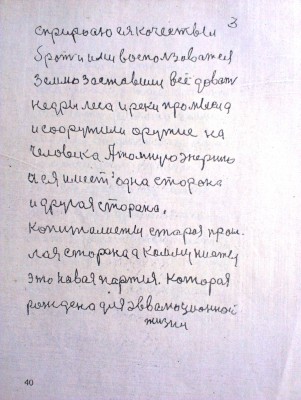 3
с природою ея качествы и
брати или воспользоватся
Землю заставили всё довать
недры леса и реки промывод
и соорутили орутие на
человека Атомную энергию
и ея имеет одна сторона
и другая сторона,
Копиталисты старая прош
лая сторона, а Коммунисты
это новая партия. Которая
рождена для эввалюционной
жизни
40